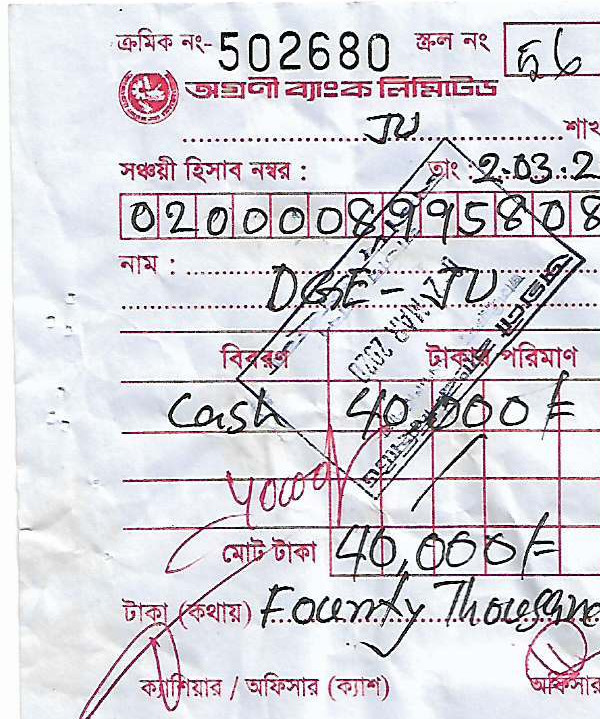 ক্রমিক নং- 502680 স্ক্রল নং
অগ্রণী ব্যাংক লিমিটেড
JU শাখ
সঞ্চয়ী হিসাব নম্বর : তাং : 2.03.2
0200008995808
নাম : DGE - JU
বিবরণ টাকার পরিমাণ
Cash 40,000/=
40000/
মোট টাকা 40,000/=
টাকা (কথায়) Fourty Thousand
ক্যাশিয়ার / অফিসার (ক্যাশ) অফিসার